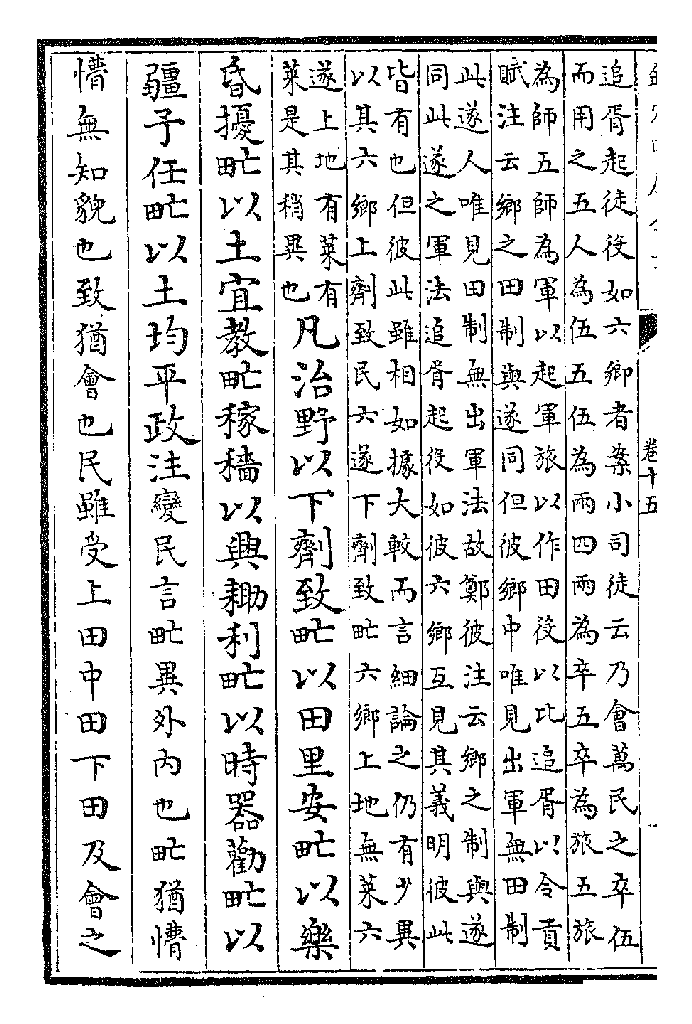 卷十五
追胥起徒役如六鄉者案小司徒云乃會萬民之卒伍
而用之五人為伍五伍為兩四兩為卒五卒為旅五旅
為師五師為軍以起軍旅以作田役以比追胥以令貢
賦注云鄉之田制與遂同但彼鄉中唯見出軍無田制
此遂人唯見田制無出軍法故鄭彼注云鄉之制與遂
同此遂之軍法追胥起役如彼六鄉互見其義明彼此
皆有也但彼此雖相如據大較而言細論之仍有少異
以其六鄉上劑致民六遂下劑致甿六鄉上地無萊六
遂上地有萊有
萊是其稍異也
凡治野以下劑致甿以田里安甿以樂
昏擾甿以土宜教甿稼穡以興耡利甿以時器勸甿以
疆予任甿以土均平政注變民言甿異外內也甿猶懵
懵無知貌也致猶會也民雖受上田中田下田及會之